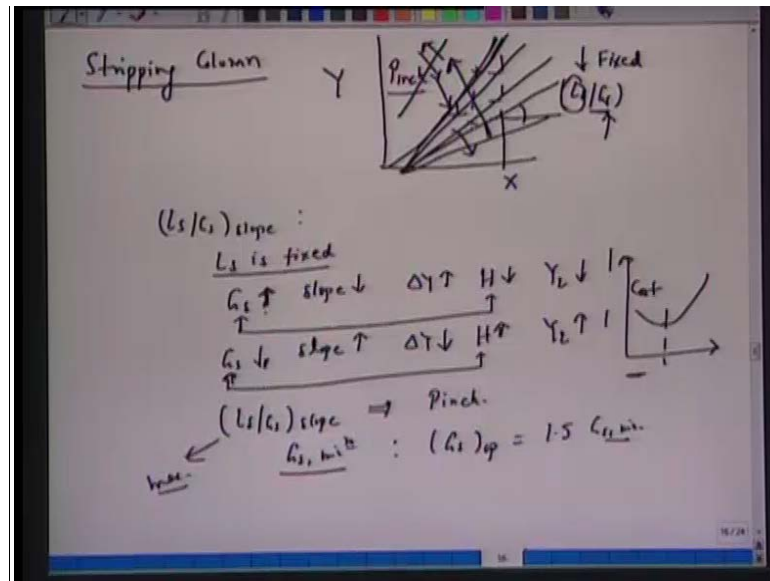 Stripping Column
Y
Pinch
↓ Fixed
(Ls/Gs)
↑
X
(Ls/Gs) slope :
Ls is fixed
Gs ↑ slope ↓ ΔY ↑ H ↓ Y₂ ↓
Gs ↓ slope ↑ ΔY ↓ H ↑ Y₂ ↑
Cost
(Ls/Gs) slope ⇒ Pinch.
max.
Gs, min : (Gs)op = 1.5 Gs, min.
16/24
16